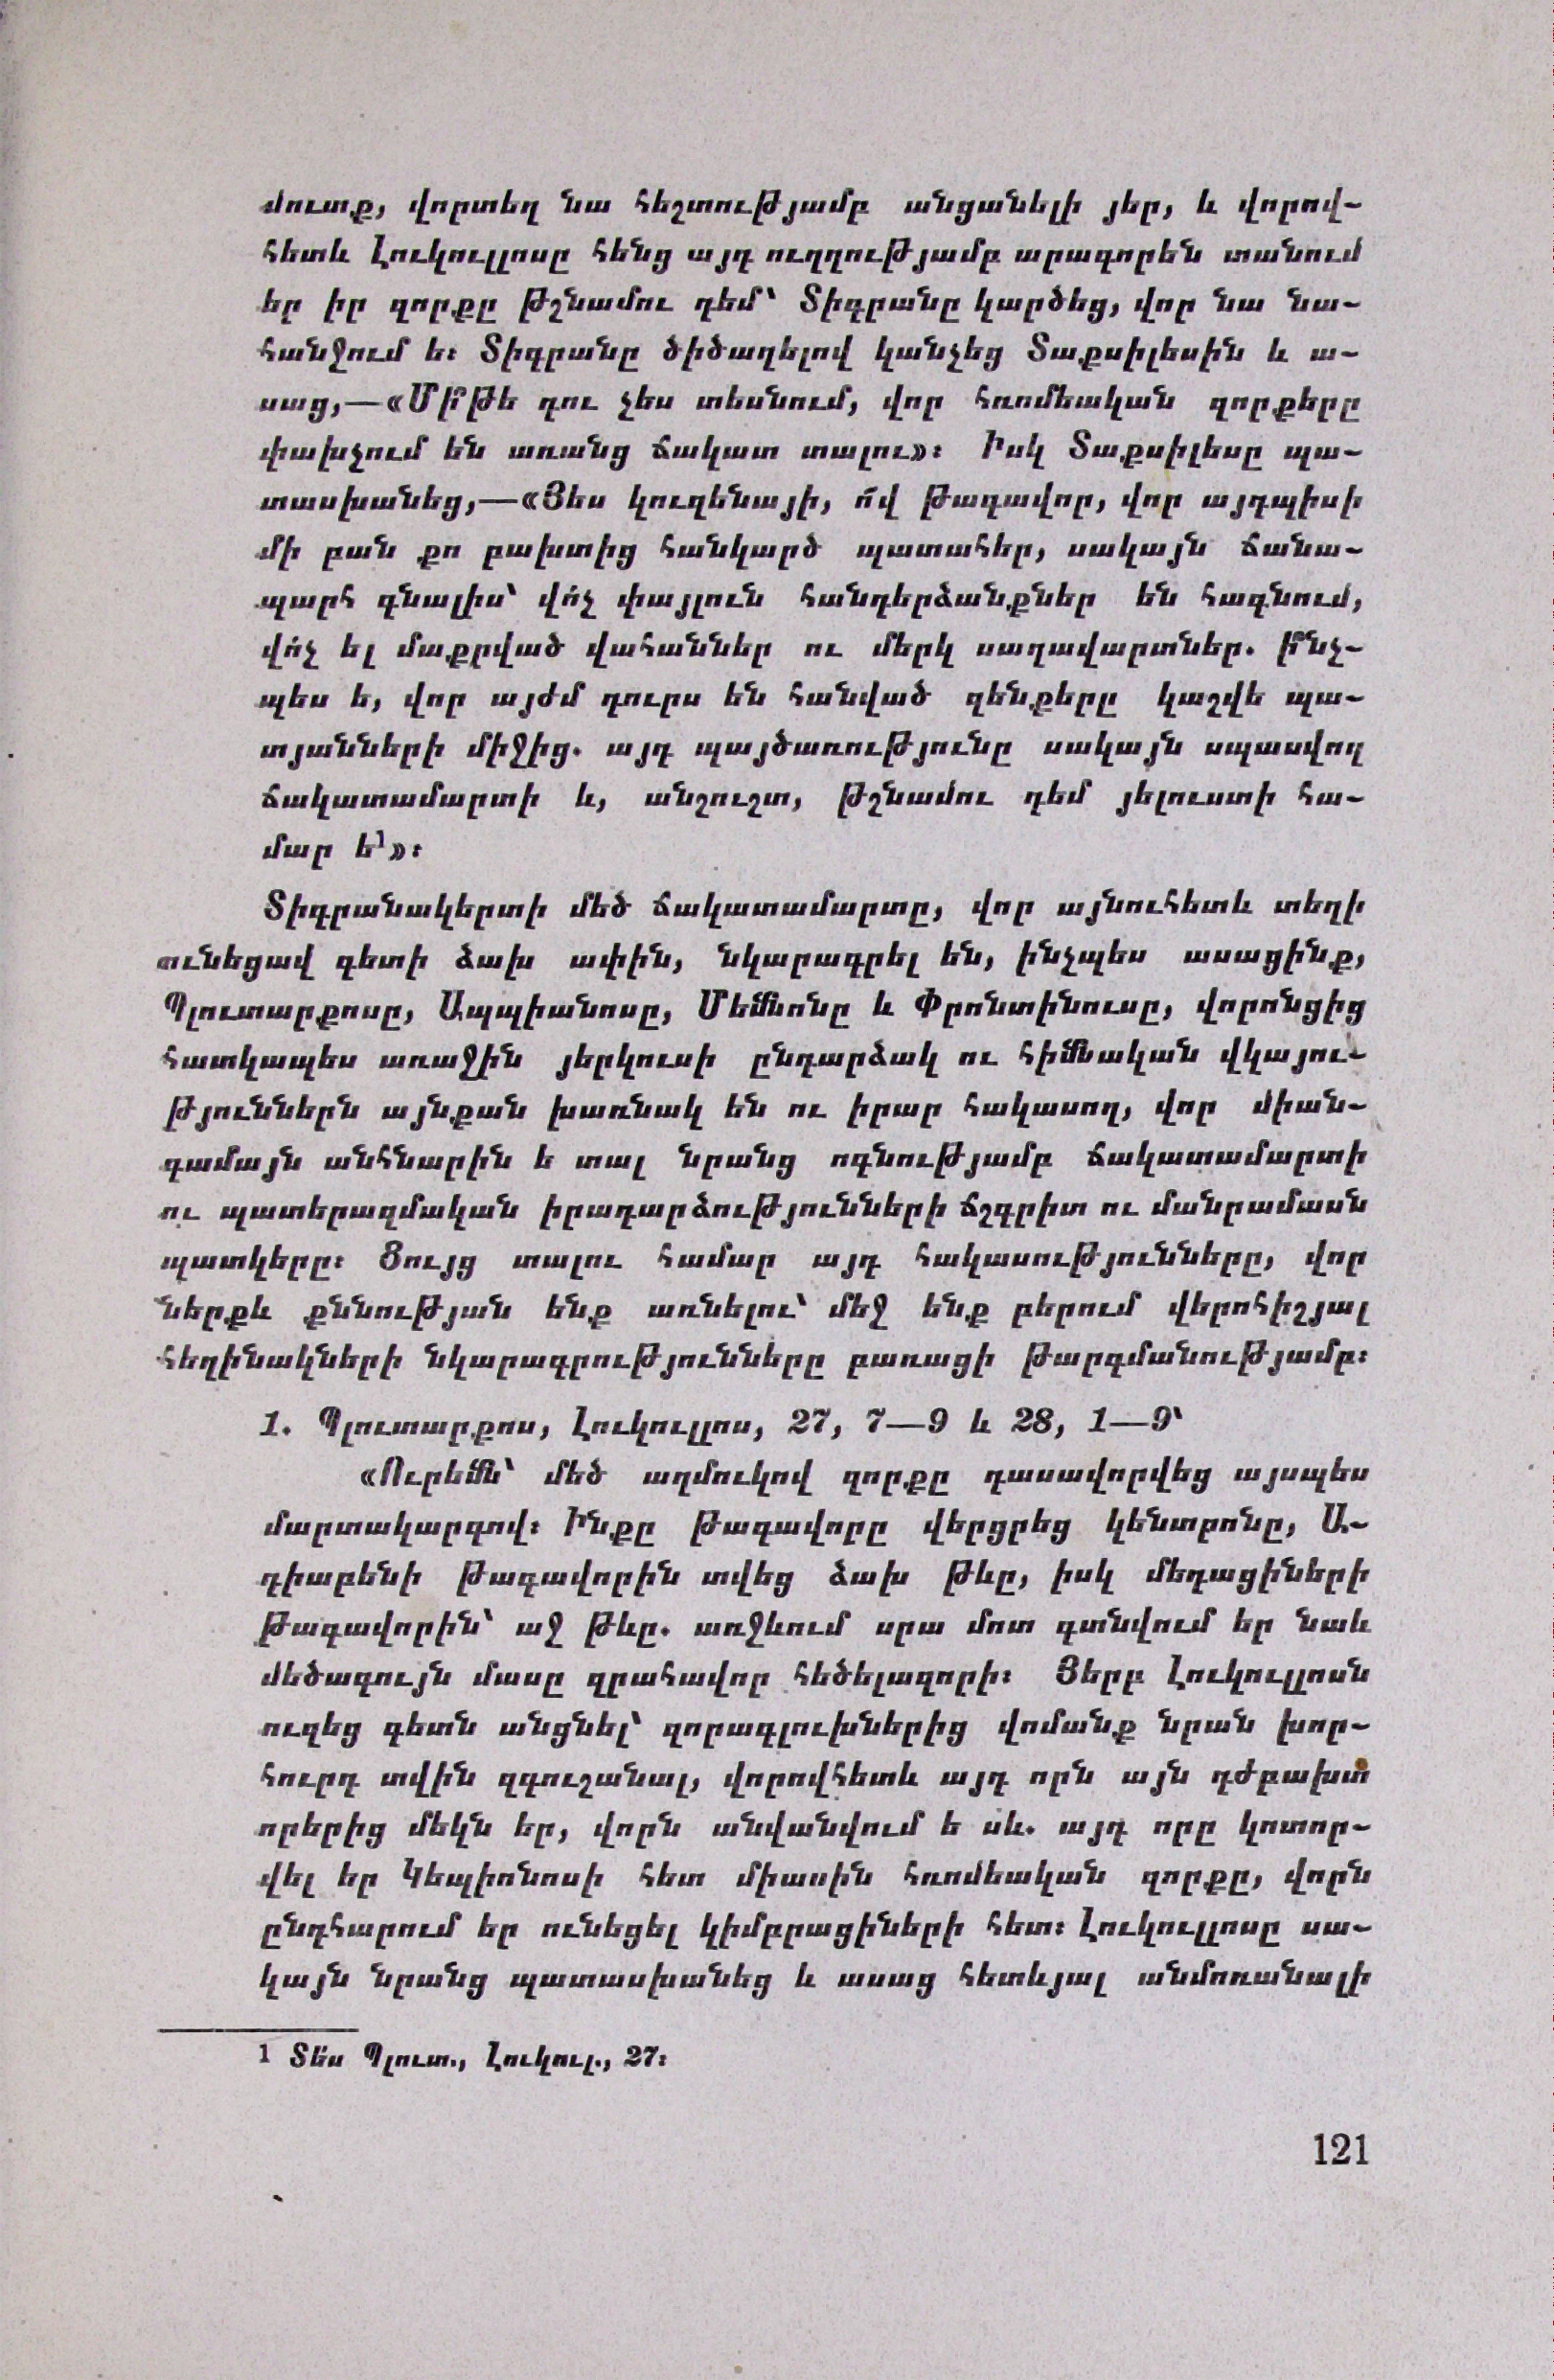 մուտք, վորտեղ նա հեշտությամբ անցանելի յեր, և վորով-
հետև Լուկուլլոսը հենց այդ ուղղությամբ արագորեն տանում
եր իր զորքը թշնամու դեմ՝ Տիգրանը կարծեց, վոր նա նա-
հանջում ե։ Տիգրանը ծիծաղելով կանչեց Տաքսիլեսին և ա-
սաց,—«Մի՞թե դու չես տեսնում, վոր հռոմեական զորքերը
փախչում են առանց ճակատ տալու»։ Իսկ Տաքսիլեսը պա-
տասխանեց,—«Յես կուզենայի, ո՜վ թագավոր, վոր այդպիսի
մի բան քո բախտից հանկարծ պատահեր, սակայն ճանա-
պարհ գնալիս՝ վո՛չ փայլուն հանդերձանքներ են հագնում,
վո՛չ ել մաքրված վահաններ ու մերկ սաղավարտներ. ի՞նչ-
պես ե, վոր այժմ դուրս են հանված զենքերը կաշվե պա-
տյանների միջից. այդ պայծառությունը սակայն սպասվող
ճակատամարտի և, անշուշտ, թշնամու դեմ յելուստի հա-
մար ե¹»։
Տիգրանակերտի մեծ ճակատամարտը, վոր այնուհետև տեղի
ունեցավ գետի ձախ ափին, նկարագրել են, ինչպես ասացինք,
Պլուտարքոսը, Ապպիանոսը, Մեմնոնը և Փրոնտինուսը, վորոնցից
հատկապես առաջին յերկուսի ընդարձակ ու հիմնական վկայու-
թյուններն այնքան խառնակ են ու իրար հակասող, վոր միան-
գամայն անհնարին ե տալ նրանց ոգնությամբ ճակատամարտի
ու պատերազմական իրադարձությունների ճշգրիտ ու մանրամասն
պատկերը։ Ցույց տալու համար այդ հակասությունները, վոր
ներքև քննության ենք առնելու՝ մեջ ենք բերում վերոհիշյալ
հեղինակների նկարագրությունները բառացի թարգմանությամբ։
1. Պլուտարքոս, Լուկուլլոս, 27, 7—9 և 28, 1—9՝
«Ուրեմն՝ մեծ աղմուկով զորքը դասավորվեց այսպես
մարտակարգով։ Ինքը թագավորը վերցրեց կենտրոնը, Ա-
դիաբենի թագավորին տվեց ձախ թևը, իսկ մեդացիների
թագավորին՝ աջ թևը. առջևում սրա մոտ գտնվում եր նաև
մեծագույն մասը զրահավոր հեծելազորի։ Յերբ Լուկուլլոսն
ուզեց գետն անցնել՝ զորագլուխներից վոմանք նրան խոր-
հուրդ տվին զգուշանալ, վորովհետև այդ որն այն դժբախտ
որերից մեկն եր, վորն անվանվում ե սև. այդ որը կոտոր-
վել եր Կեպիոնոսի հետ միասին հռոմեական զորքը, վորն
ընդհարում եր ունեցել կիմբրացիների հետ։ Լուկուլլոսը սա-
կայն նրանց պատասխանեց և ասաց հետևյալ անմոռանալի
1 Տե՛ս Պլուտ., Լուկուլ., 27։
121